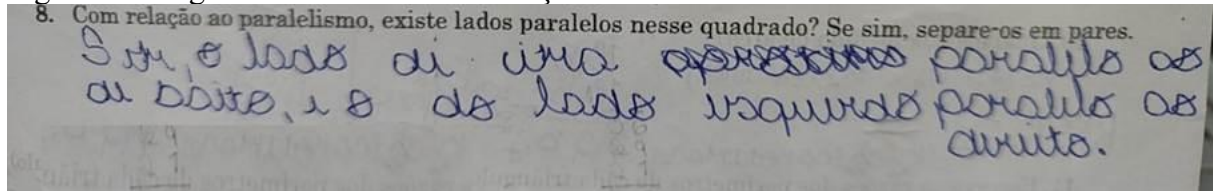 8. Com relação ao paralelismo, existe lados paralelos nesse quadrado? Se sim, separe-os em pares.
Sim, o lado di cima paralelo ao
di baixo, e o do lado esquerdo paralelo ao
direito.